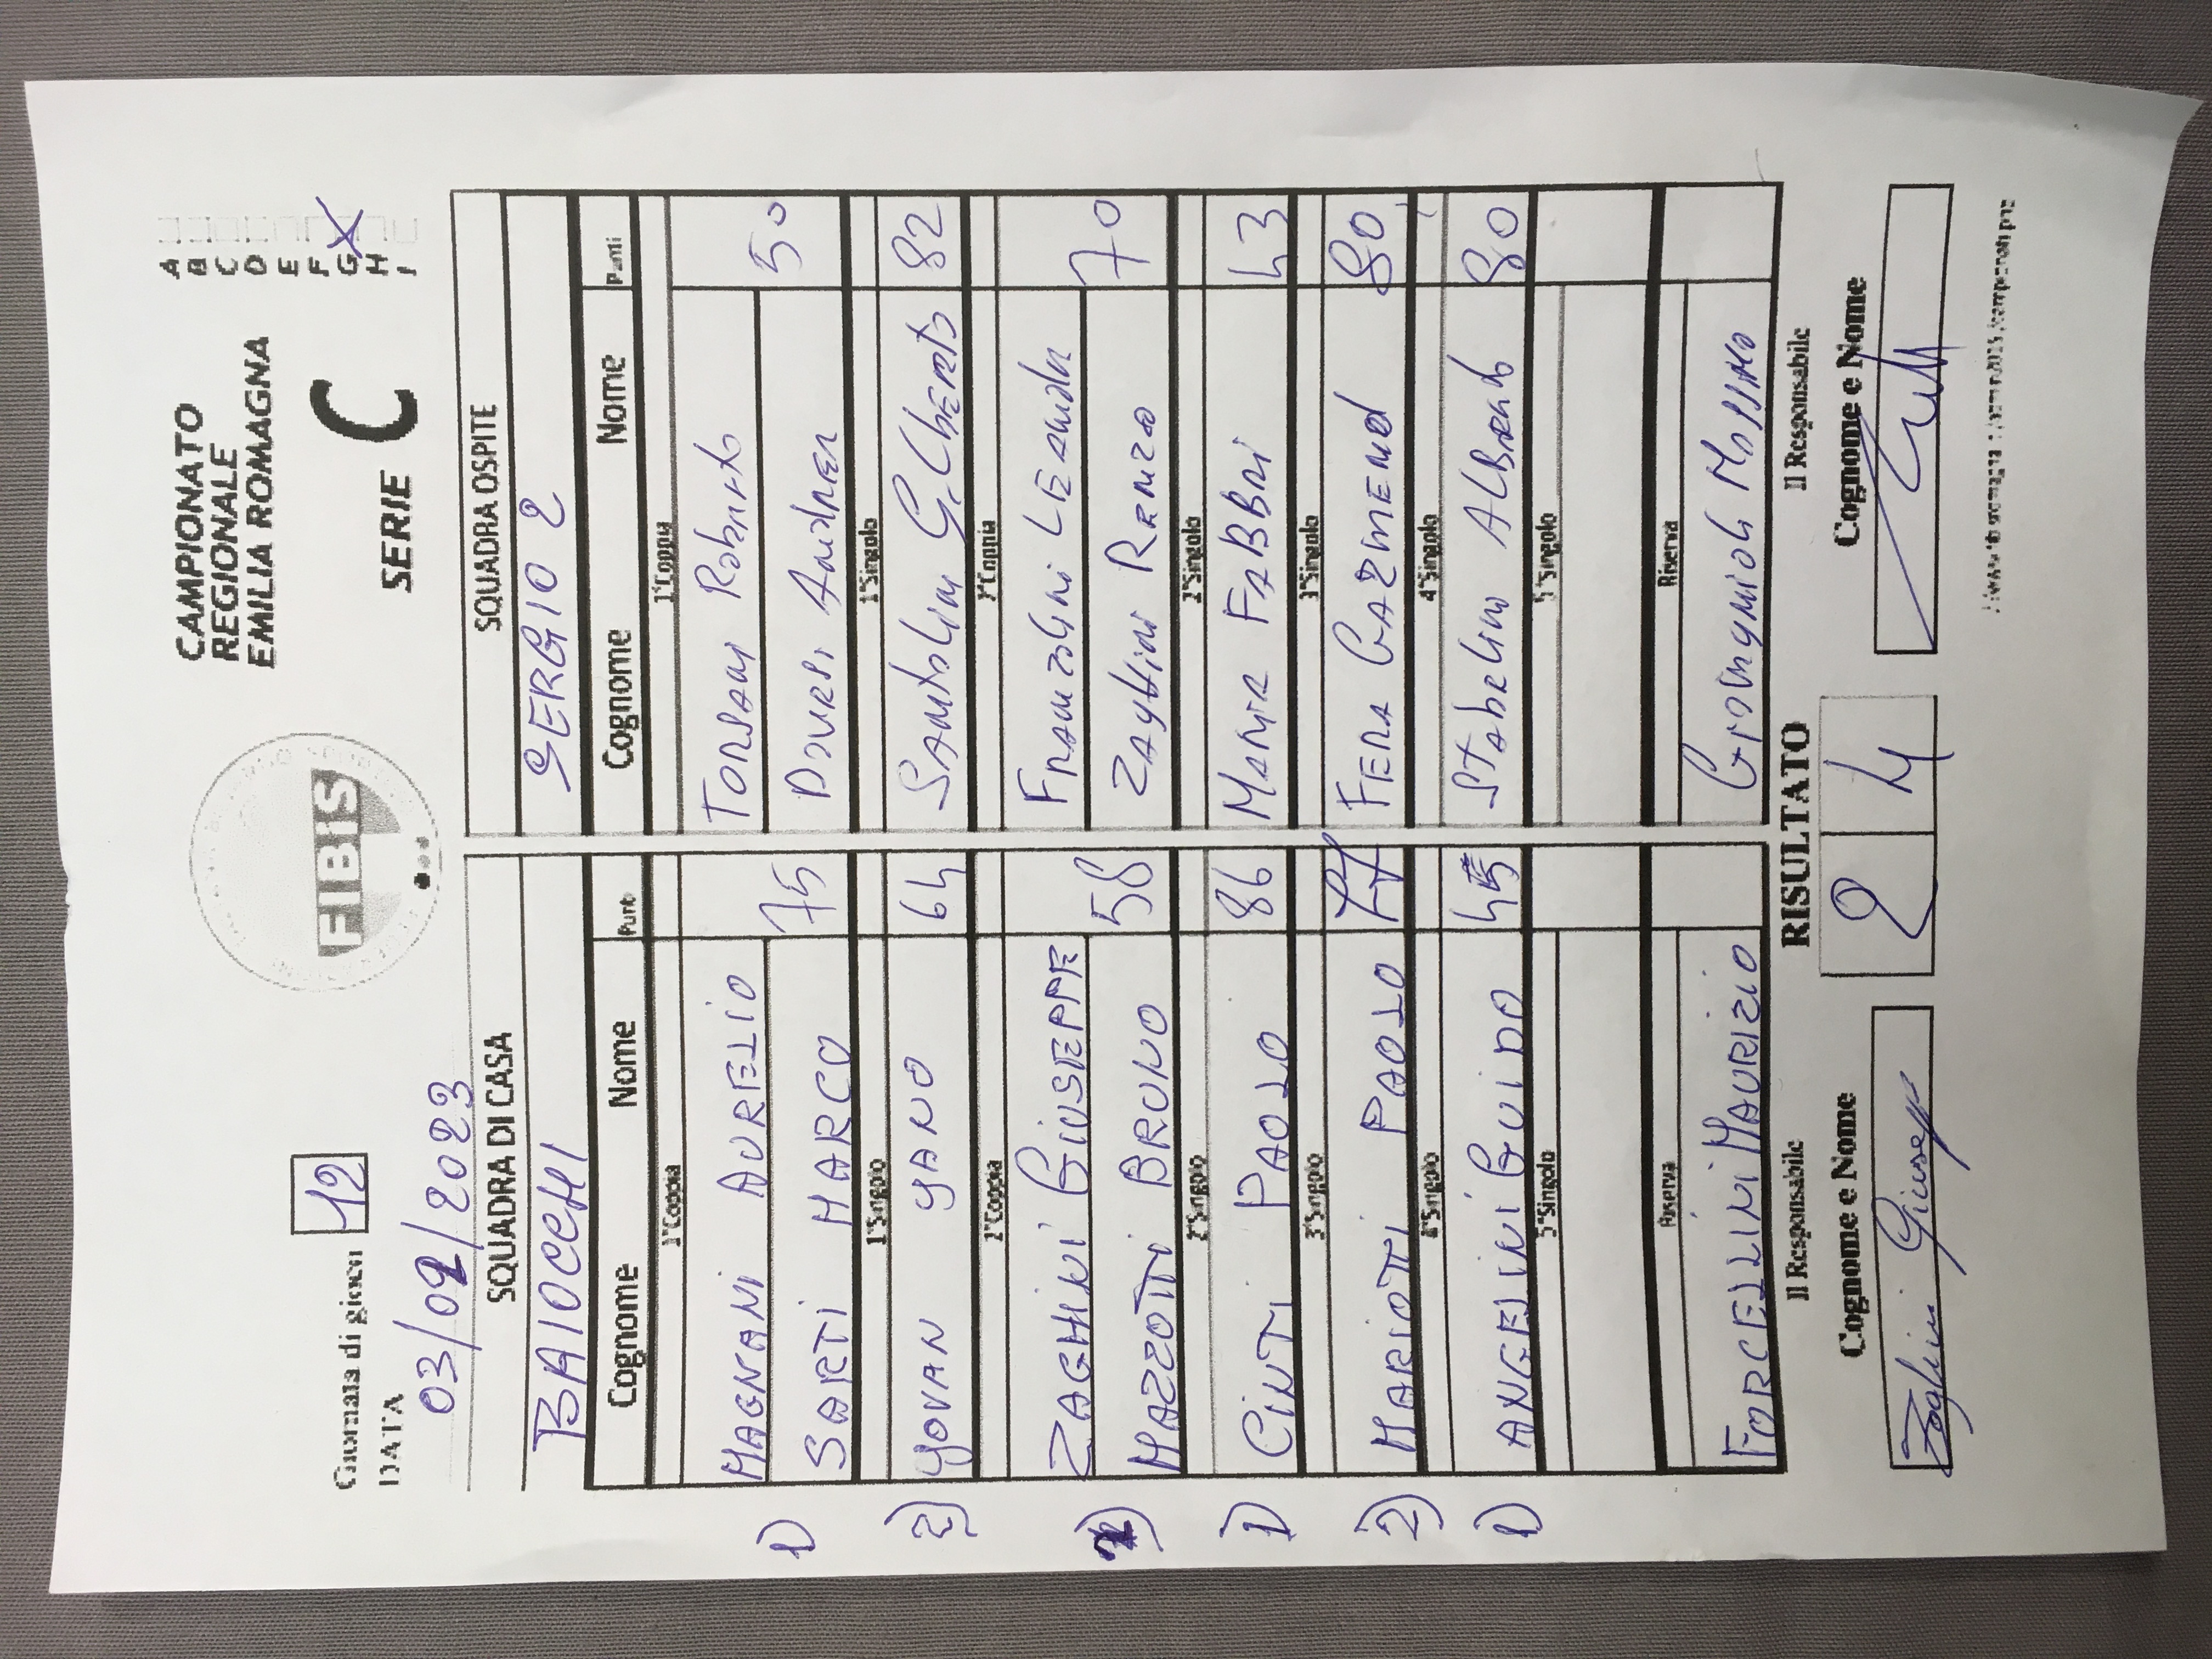 CAMPIONATO
REGIONALE
EMILIA ROMAGNA
FIBIS
A
B
C
D
E
F
G X
H
I
Giornata di gioco 12
DATA
03/02/2023
SERIE C
SQUADRA DI CASA SQUADRA OSPITE
BAIOCCHI SERGIO 2
Cognome Nome Punti Cognome Nome Punti
1°Coppia 1°Coppia
MAGNANI AURELIO TORSANI Roberto
1) SARTI MARCO 75 Andrea 50
1°Singolo 1°Singolo
2) YOVAN YANO 64 Santolini Gilberto 82
2°Coppia 2°Coppia
ZAGHINI GIUSEPPE Franzolini LEANDRA
MAZZOTTI BRUNO 58 Zaghini Renzo 70
2°Singolo 2°Singolo
1) CINTI PAOLO 86 FABBRI 43
3°Singolo 3°Singolo
2) MARIOTTI PAOLO 77 FERA GAZMEND 80
4°Singolo 4°Singolo
1) ANGELINI GUIDO 45 Stabellino 80
5°Singolo 5°Singolo
Riserva Riserva
FORCELLINI MAURIZIO Massimo
Il Responsabile RISULTATO Il Responsabile
Cognome e Nome 2 4 Cognome e Nome
Zaghini Giuseppe